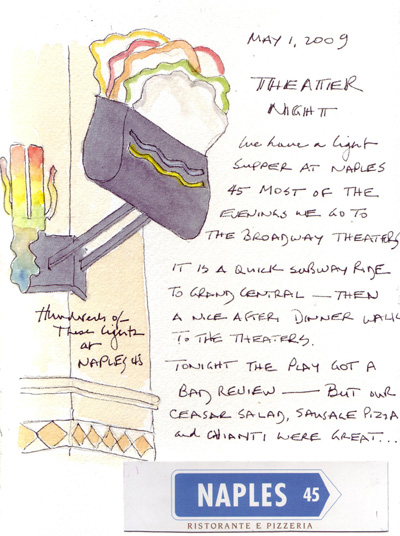 MAY 1, 2009
THEATER
NIGHT
We have a light
SUPPER AT NAPLES
45 MOST OF THE
EVENINGS WE GO TO
THE BROADWAY THEATERS
IT IS A QUICK SUBWAY RIDE
TO GRAND CENTRAL — THEN
A NICE AFTER DINNER WALK
TO THE THEATERS.
TONIGHT THE PLAY GOT A
BAD REVIEW — BUT OUR
CEASAR SALAD, SAUSAGE PIZZA
and CHIANTI WERE GREAT...
Hundreds of
These lights
at
NAPLES 45
NAPLES 45
RISTORANTE E PIZZERIA